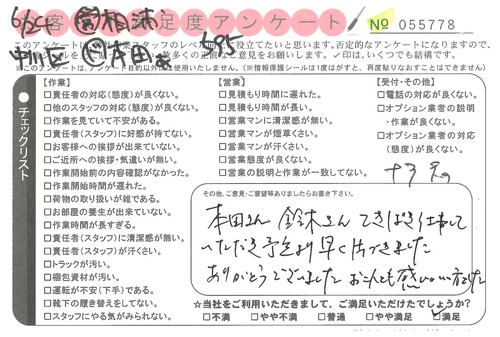 お客様満足度アンケート
№ 055778
6/24
中川区
695
このアンケートは
スタッフのレベル
役立てたいと思います。否定的なアンケートになりますので、
数多くの正直なご意見をお願いします。✓印は、いくつでも結構です。
※このアンケートは、アンケート目的以外は使用いたしません。(※情報保護シールは1度はがすと、再度貼りなおすことはできません)
チェックリスト
【作業】
□責任者の対応(態度)が良くない。
□他のスタッフの対応(態度)が良くない。
□作業を見ていて不安がある。
□責任者(スタッフ)に好感が持てない。
□お客様への挨拶が出来ていない。
□ご近所への挨拶・気遣いが無い。
□作業開始前の内容確認がなかった。
□作業開始時間が遅れた。
□荷物の取り扱いが雑である。
□お部屋の養生が出来ていない。
□作業時間が長すぎる。
□責任者(スタッフ)に清潔感が無い。
□責任者(スタッフ)が汗くさい。
□トラックが汚い。
□梱包資材が汚い。
□運転が不安(下手)である。
□靴下の履き替えをしてない。
□スタッフにやる気がみられない。
【営業】
□見積もり時間に遅れた。
□見積もり時間が長い。
□営業マンに清潔感が無い。
□営業マンが煙草くさい。
□営業マンが汗くさい。
□営業態度が良くない。
□営業の説明と作業が一致してない。
【受付・その他】
□電話の対応が良くない。
□オプション業者の説明・作業が良くない。
□オプション業者の対応(態度)が良くない。
その他、ご意見・ご要望等ありましたらお書き下さい。
本田さん 鈴木さん てきぱき仕事して
いただき予定より早く片づきました
ありがとうございました お二人とも感じのいい方でした
☆当社をご利用いただきまして、ご満足いただけたでしょうか?
□不満 □やや不満 □普通 □やや満足 ☑満足